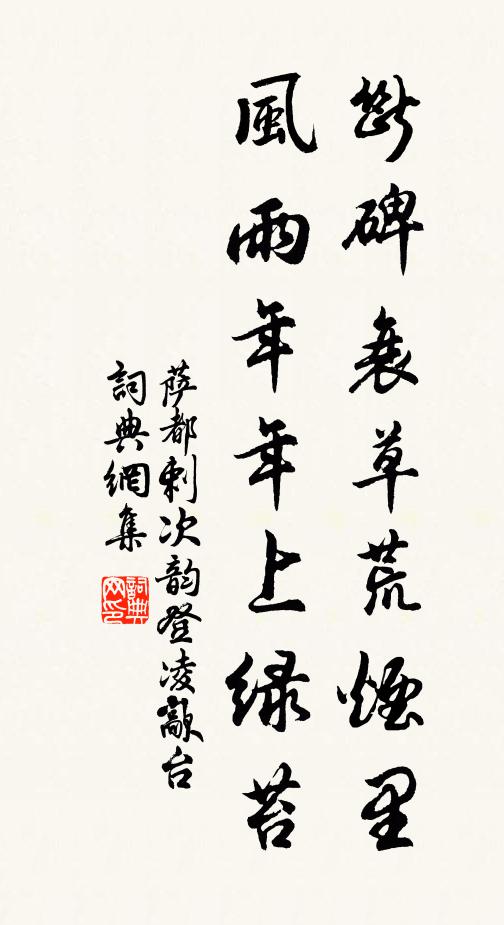 斷碑衰草荒煙里
風雨年年上綠苔
薩都剌次韵登凌歊台
詞典網集
詞典
网印